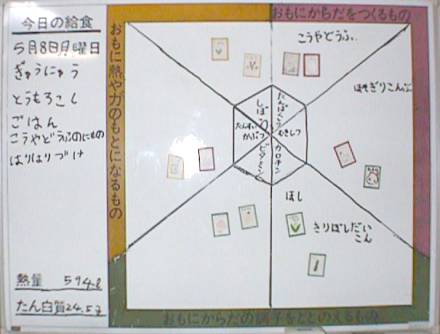 今日の給食
5月8日月曜日
ぎゅうにゅう
とうもろこし
ごはん
こうやどうふのにもの
はりはりづけ
熱量 594.8
たん白質24.5g
おもに熱や力のもとになるもの
おもにからだをつくるもの
こうやどうふ
ほそぎりこんぶ
しぼう
たんぱくしつ
たんすいかぶつ
むきしつ
ビタミン
カロチン
ほし
きりぼしだい
こん
おもにからだの調子をととのえるもの